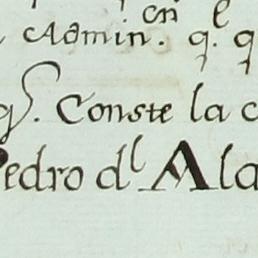 en e
Admin. q. q
q. Conste la c
Pedro dl Ala